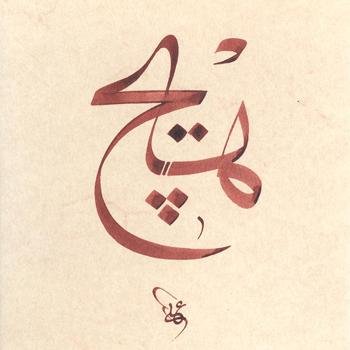 هیچ